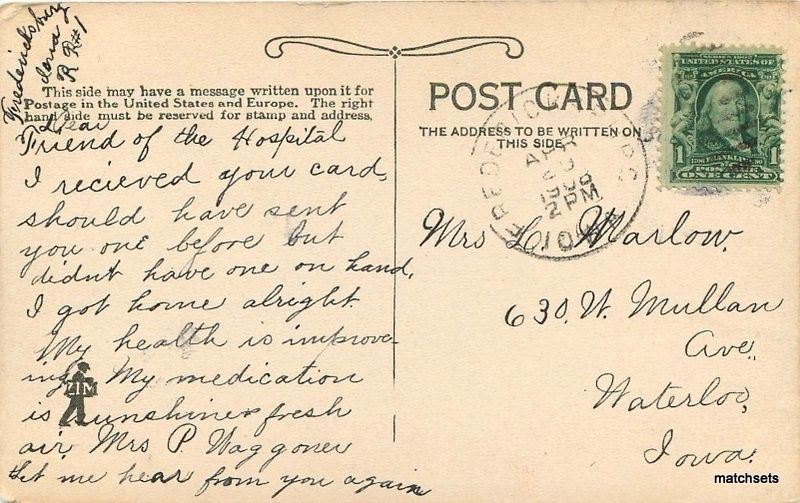 Fredericksburg
Iowa
R R #1
This side may have a message written upon it for
Postage in the United States and Europe. The right
hand side must be reserved for stamp and address.
Dear
Friend of the Hospital
I recieved your card,
should have sent
you one before but
didnt have one on hand,
I got home alright.
My health is improve-
ing. My medication
is sunshine & fresh
air, Mrs P. Waggoner
Let me hear from you again
ZIM
POST CARD
THE ADDRESS TO BE WRITTEN ON
THIS SIDE
FREDERICKSBURG
APR
1908
2 PM
IOWA
SERIES 1902
UNITED STATES OF
AMERICA
FRANKLIN
POSTAGE
1 ONE CENT 1
Mrs L. Marlow,
630. W. Mullan
Ave.,
Waterloo,
Iowa.
matchsets